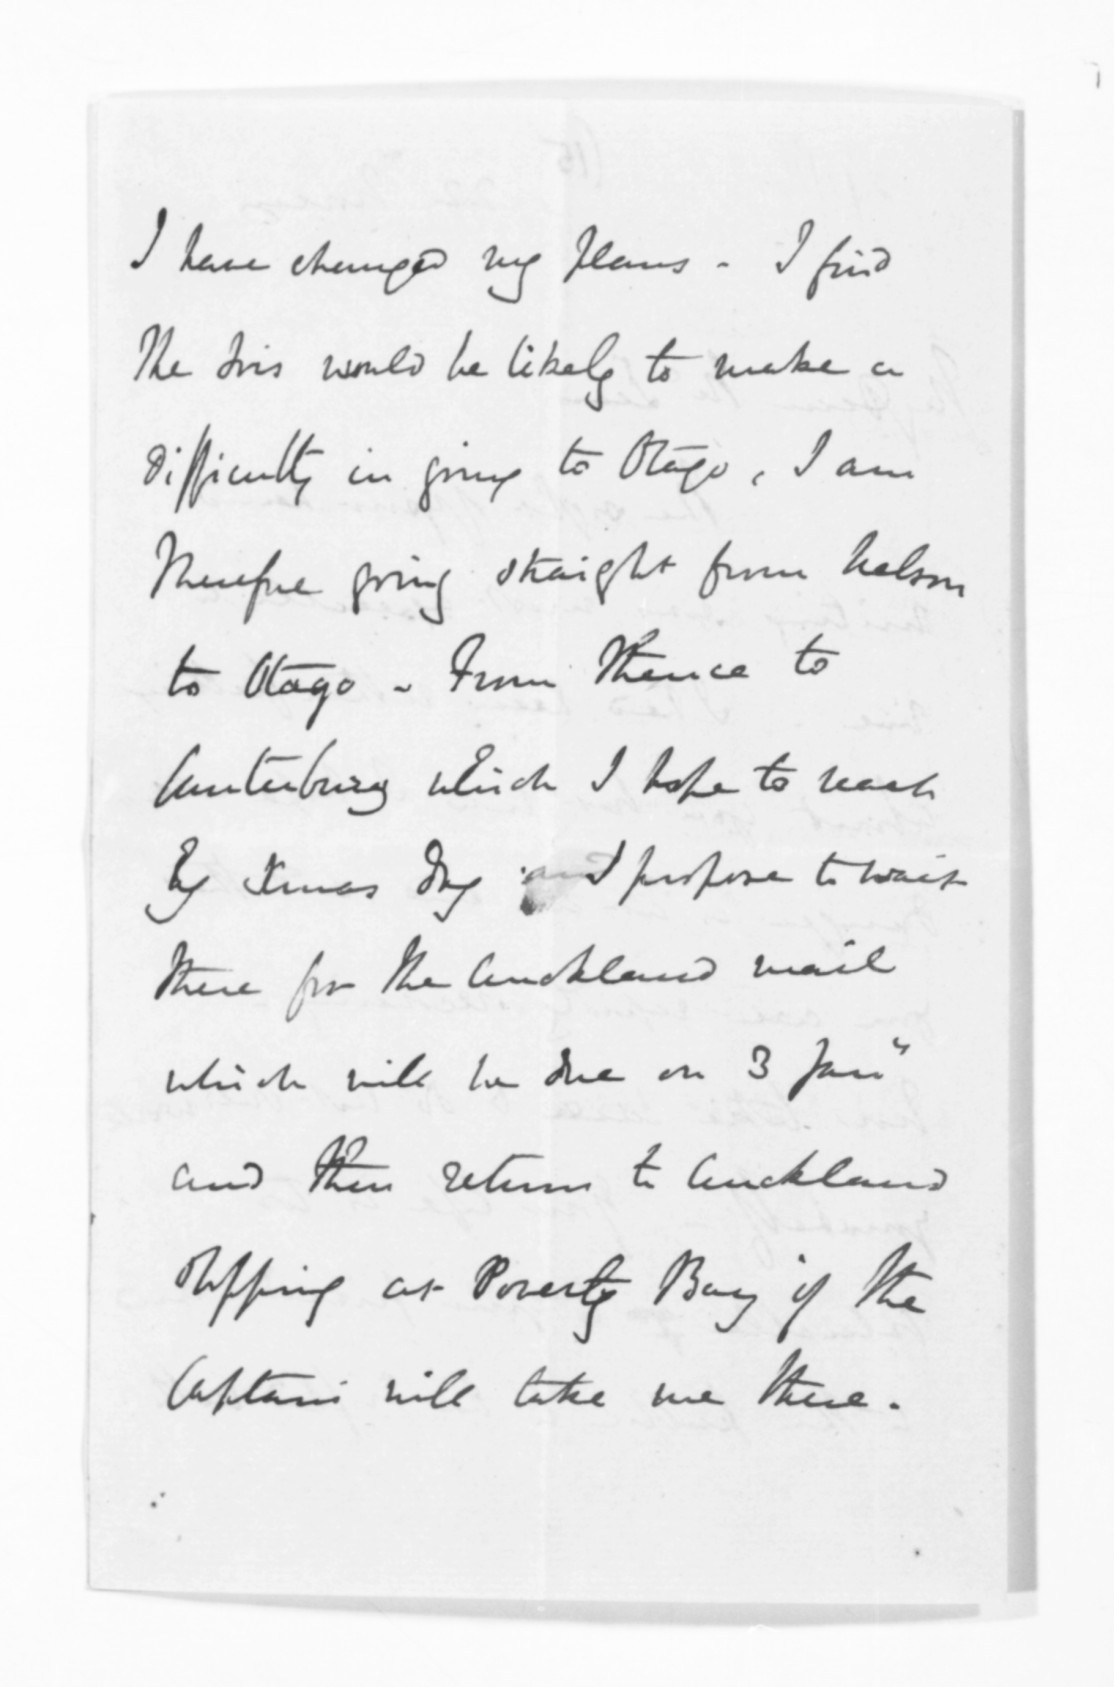 I have changed my plans - I find
the Iris would be likely to make a
difficulty in going to Otago, I am
therefore going straight from Nelson
to Otago - From thence to
Canterbury which I hope to reach
By Xmas Day and I propose to wait
there for the Auckland mail
which will be due on 3 Jany
and then return to Auckland
stopping at Poverty Bay if the
Captain will take me there.